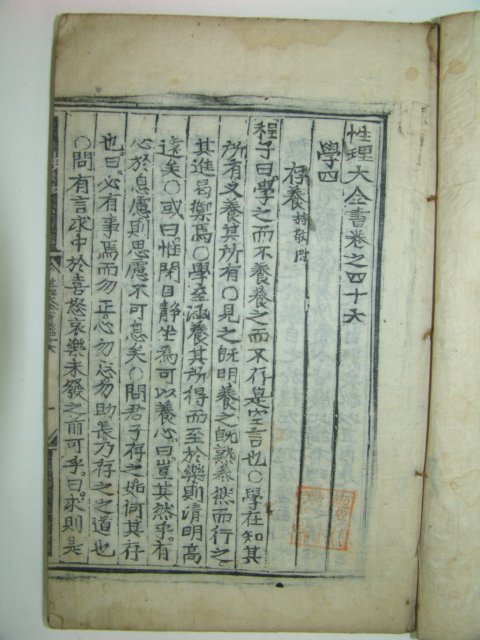 性理大全書卷之四十六
學四
存養 持敬附
程子曰學之而不養養之而不存是空言也○學在知其
所有又養其所有○見之旣明養之旣熟泰然而行之
其進曷禦焉○學至涵養其所得而至於樂則淸明高
遠矣○或曰惟閉目静坐爲可以養心曰豈其然乎有
心於息慮則思慮不可息矣○問君子存之如何其存
也曰必有事焉而勿正心勿忘勿助長乃存之之道也
○問有言求中於喜怒哀樂未發之前可乎曰求則是